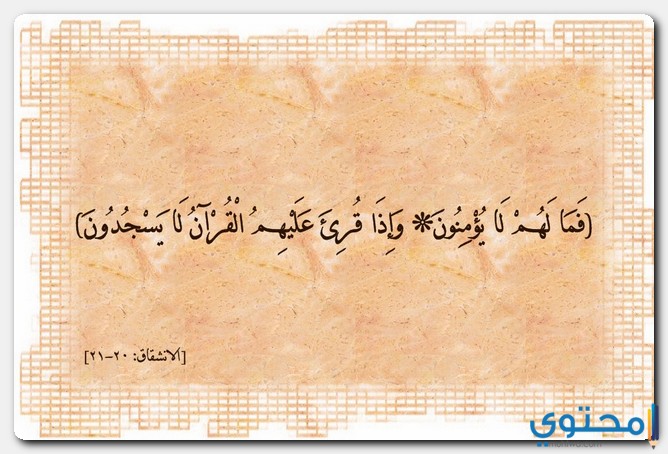 (فَمَا لَهُمْ لَا يُؤْمِنُونَ* وَإِذَا قُرِئَ عَلَيْهِمُ الْقُرْآنُ لَا يَسْجُدُونَ)
[الانشقاق: ٢٠-٢١]
محتوي